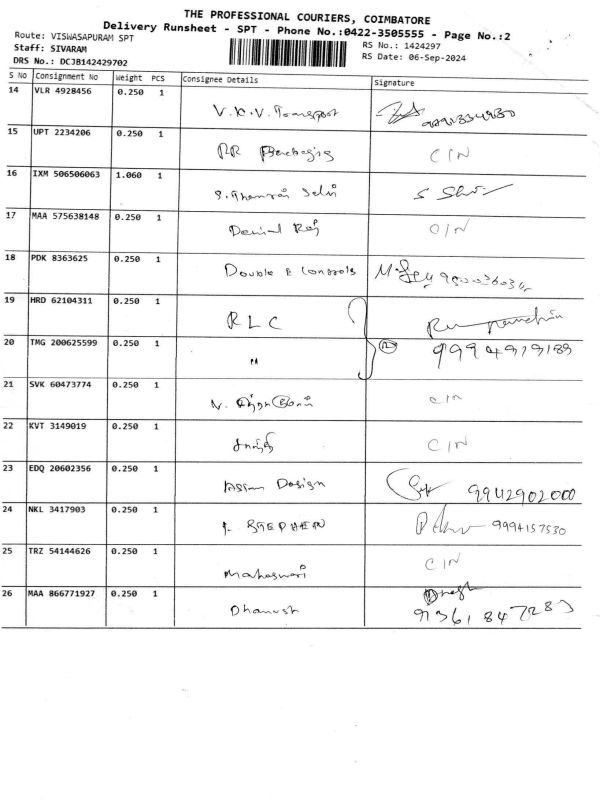 THE PROFESSIONAL COURIERS, COIMBATORE
Delivery Runsheet - SPT - Phone No.:0422-3505555 - Page No.:2
Route: VISWASAPURAM SPT
RS No.: 1424297
Staff: SIVARAM
RS Date: 06-Sep-2024
DRS No.: DCJB142429702
S No Consignment No Weight PCS Consignee Details Signature
14 VLR 4928456 0.250 1
V.K.V. Transport
15 UPT 2234206 0.250 1
RR Packaging CIN
16 IXM 506506063 1.060 1
17 MAA 575638148 0.250 1
Daniel Raj CIN
18 PDK 8363625 0.250 1
Double E Controls
19 HRD 62104311 0.250 1
RLC
20 TMG 200625599 0.250 1
21 SVK 60473774 0.250 1
CIN
22 KVT 3149019 0.250 1
CIN
23 EDQ 20602356 0.250 1
Design 9942902000
24 NKL 3417903 0.250 1
STEPHEN 9994157530
25 TRZ 54144626 0.250 1
Maheswari CIN
26 MAA 866771927 0.250 1
Dhanush